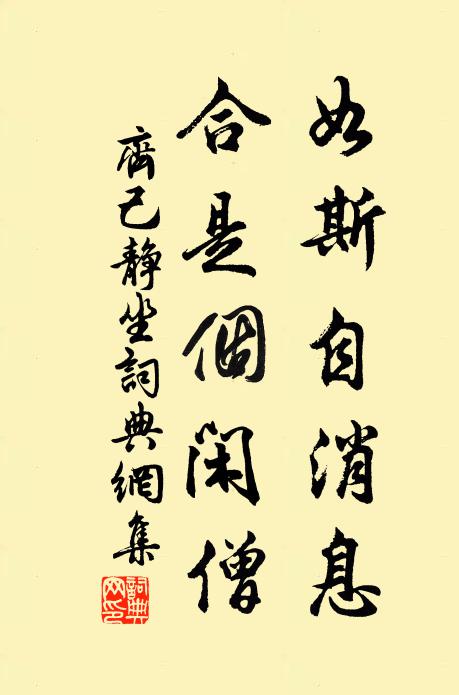 如斯自消息
合是個閑僧
齊己静坐詞典網集
詞典網印